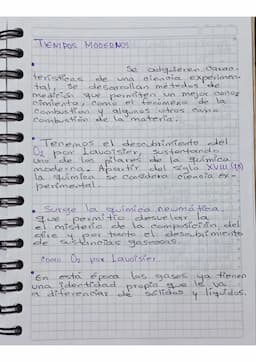 TIEMPOS MODERNOS
Se adquieren carac-
terísticas de una ciencia experimen-
tal, se desarrollan métodos de
medición que permiten un mejor cono-
cimiento, como el fenómeno de la
combustión y algunos otros como
combustión de la materia.
• Tenemos el descubrimiento del
O2 por Lavoisier, sustentando
uno de los pilares de la química
moderna. Apartir del siglo XVIII (18)
la química se considera ciencia ex-
perimental.
• Surge la química neumática,
que permitió desvelar la
el misterio de la composición del
aire y por tanto el descubrimiento
de sustancias gaseosas.
como O2 por Lavoisier
• En está época los gases ya tienen
una identidad propia que le va
a diferenciar de sólidos y líquidos.